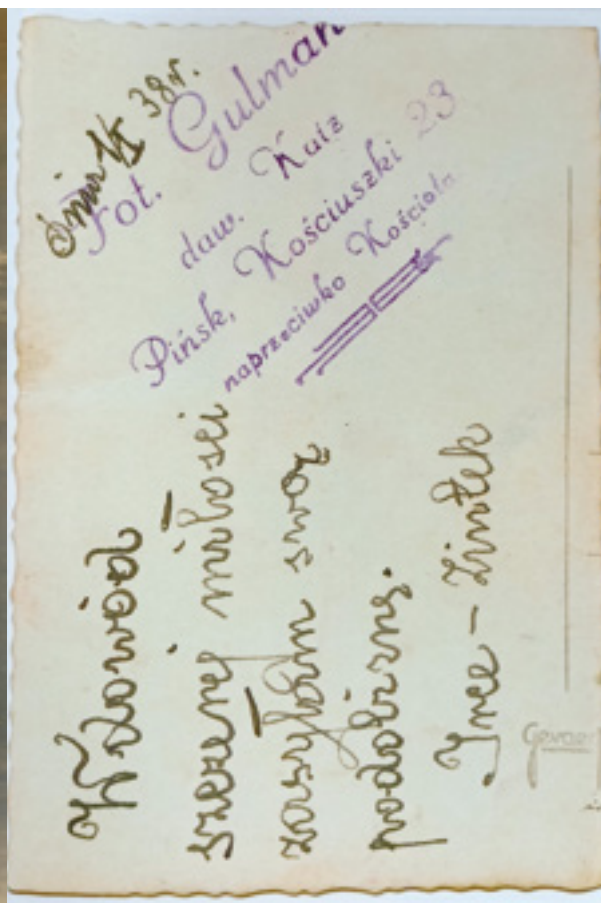 38r.
Fot. Gulman
daw. Kaiz
Pińsk, Kościuszki 23
naprzeciwko Kościoła
W dowód
szczerej miłości
zasyłam swoją
podobiznę.
Irce –
Gevae